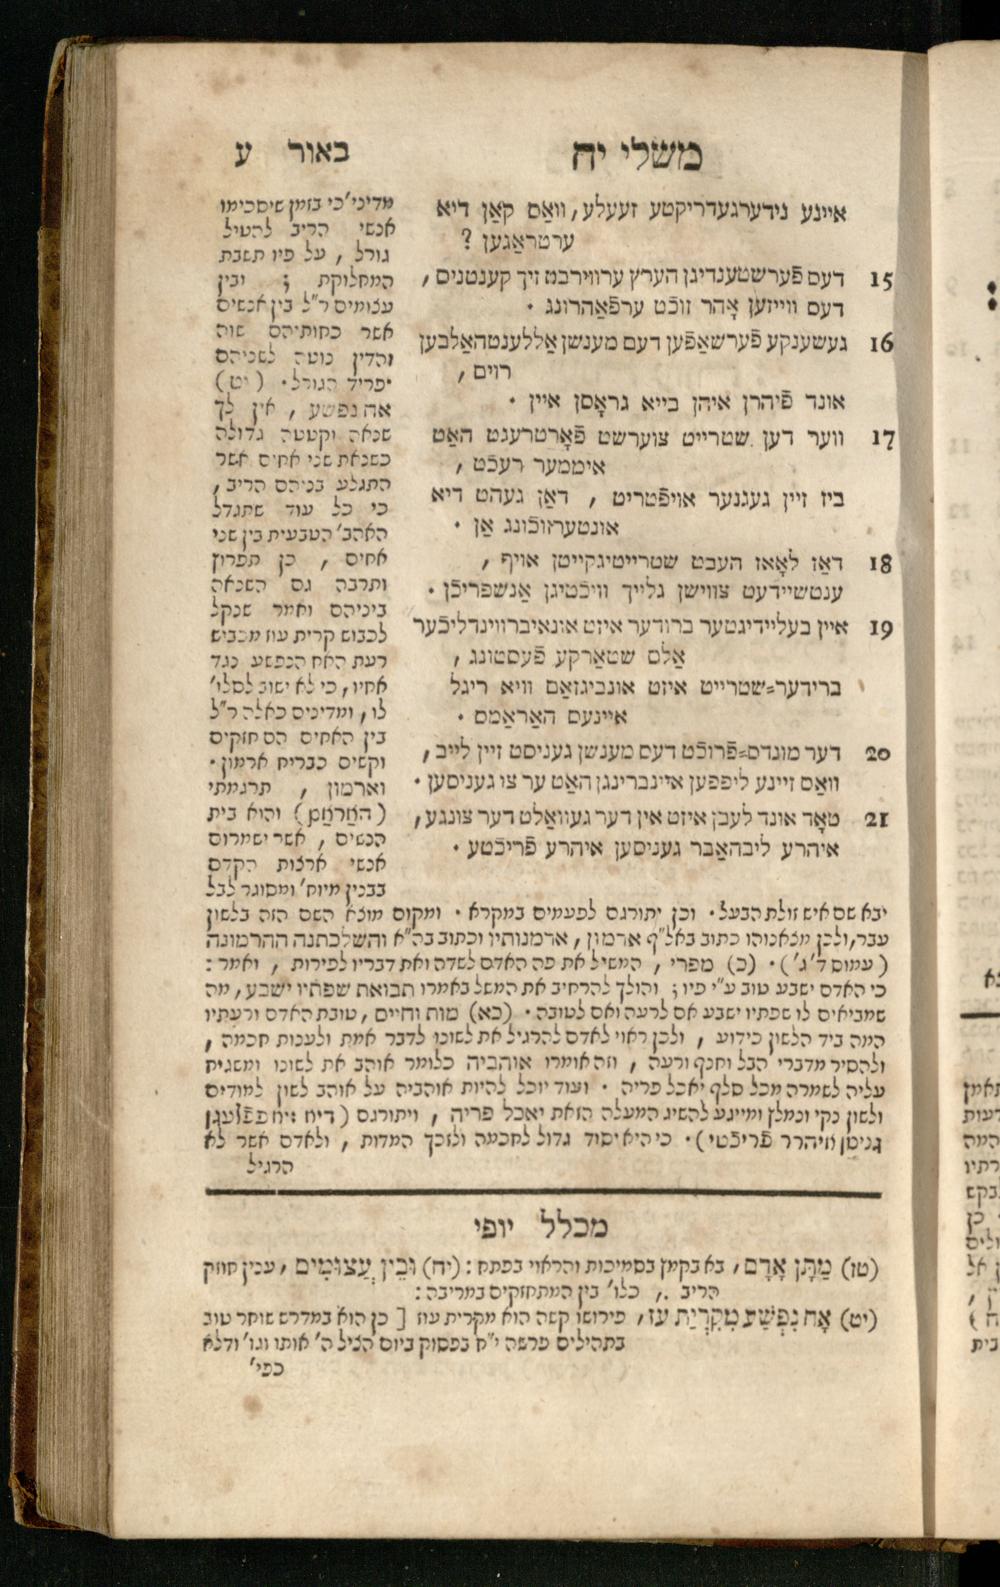 משלי יח
באור ע
איינע נידערגעדריקטע זעעלע, וואַס קאַן דיא
ערטראַגען ?
15 דעס פֿערשטענדיגן הערץ ערווירבט זיך קענטניס,
דעס ווייזען אָהר זוכֿט ערפֿאַהרונג .
16 געשענקע פֿערשאַפֿען דעם מענשן אַללענטהאַלבען
רוים ,
אונד פֿיהרן איהן בייא גראָסן איין .
17 ווער דען שטרייט צוערשט פֿאָרטרעגט האַט
איממער רעכֿט ,
ביז זיין געגנער אויפֿטריט , דאַן געהט דיא
אונטערזוכֿונג אַן .
18 דאַז לאָאז העבט שטרייטיגקייטן אויף ,
ענטשיידעט צווישן גלייך וויכֿטיגן אַנשפריכֿן .
19 איין בעליידיגטער ברודער איזט אונאיברווינדליכֿער
אַלס שטאַרקע פֿעסטונג ,
ברידער=שטרייט איזט אונביגזאַם וויא ריגל
איינעס האַראַמס .
20 דער מונדס=פֿרוכֿט דעס מענשן געניסט זיין לייב,
וואַס זיינע ליפפען איינברינגן האַט ער צו געניסען .
21 טאָד אונד לעבן איזט אין דער געוואַלט דער צונגע,
איהרע ליבהאַבר געניסען איהרע פֿריכֿטע .
מדיני' כי בזמן שיסכימו
אנשי הריב להטיל
גורל , על פיו תשבת
המחלוקת ; ובין
עצומים ר"ל בין אנשים
אשר כחותיהם שוה
והדין נוטה לשניהם
יפריד הגורל. (יט)
אח נפשע , אין לך
שנאה וקטטה גדולה
כשנאת שני אחים אשר
התגלע בניהם הריב,
כי כל עוד שתגדל
האהב' הטבעית בין שני
אחים , כן תפרוץ
ותרבה גם השנאה
ביניהם ואמר שנקל
לכבוש קרית עוז מכביש
רעת האח הנפשע נגד
אחיו, כי לא ישוב לסלו'
לו, ומדינים כאלה ר"ל
בין האחים הם חזקים
וקשים כבריח ארמון.
וארמון , תרגמתי
(האַראַם) והוא בית
הנשים , אשר ישמרום
אנשי ארצות הקדם
בבנין מיוח' ומסוגר לבל
יבא שם איש זולת הבעל. וכן יתורגם לפעמים במקרא. ומקום מוצא השם הזה בלשון
עבר, ולכן מצאנוהו כתוב באל"ף ארמון , ארמנותיו וכתוב בה"א והשלכתנה ההרמונה
(עמוס ד' ג'). (כ) מפרי , המשיל את פה האדם לשדה ואת דבריו לפירות , ואמר :
כי האדם ישבע טוב ע"י פיו ; והולך להרחיב את המשל באמרו תבואת שפתיו ישבע, מה
שמביאים לו שפתיו ישבע אם לרעה ואם לטובה. (כא) מות וחיים, טובת האדם ורעתיו
המה ביד הלשון כידוע , ולכן ראוי לאדם להרגיל את לשונו לדבר אמת ולענות חכמה ,
ולהסיר מדברי הבל וחנף ורעה , וזה אומרו אוהביה כלומר אוהב את לשונו ומשגיח
עליה לשמרה מכל סלף יאכל פריה . ועוד יוכל להיות אוהביה על אוהב לשון למודים
ולשון נקי ונמלץ ומייגע להשיג המעלה הזאת יאכל פריה , ויתורגם (דיא
גניסן איהרר פֿריכֿטי). כי היא יסוד גדול לחכמה ולזכך המדות , ולאדם אשר לא
הרגיל
מכלל יופי
(טז) מַתָּן אָדָם, בא בקמץ בסמיכות והראוי בפתח : (יח) וּבֵין עֲצוּמִים, ענין חוזק
הריב ., כלו' בין המתחזקים במריבה :
(יט) אָח נִפְשָׁע מִקִּרְיַת עֹז, פירושו קשה הוא מקרית עוז [ כן הוא במדרש שוחר טוב
בתהילים פרשה י"ח בפסוק ביום הציל ה' אותו וגו' ודלא
כפי'